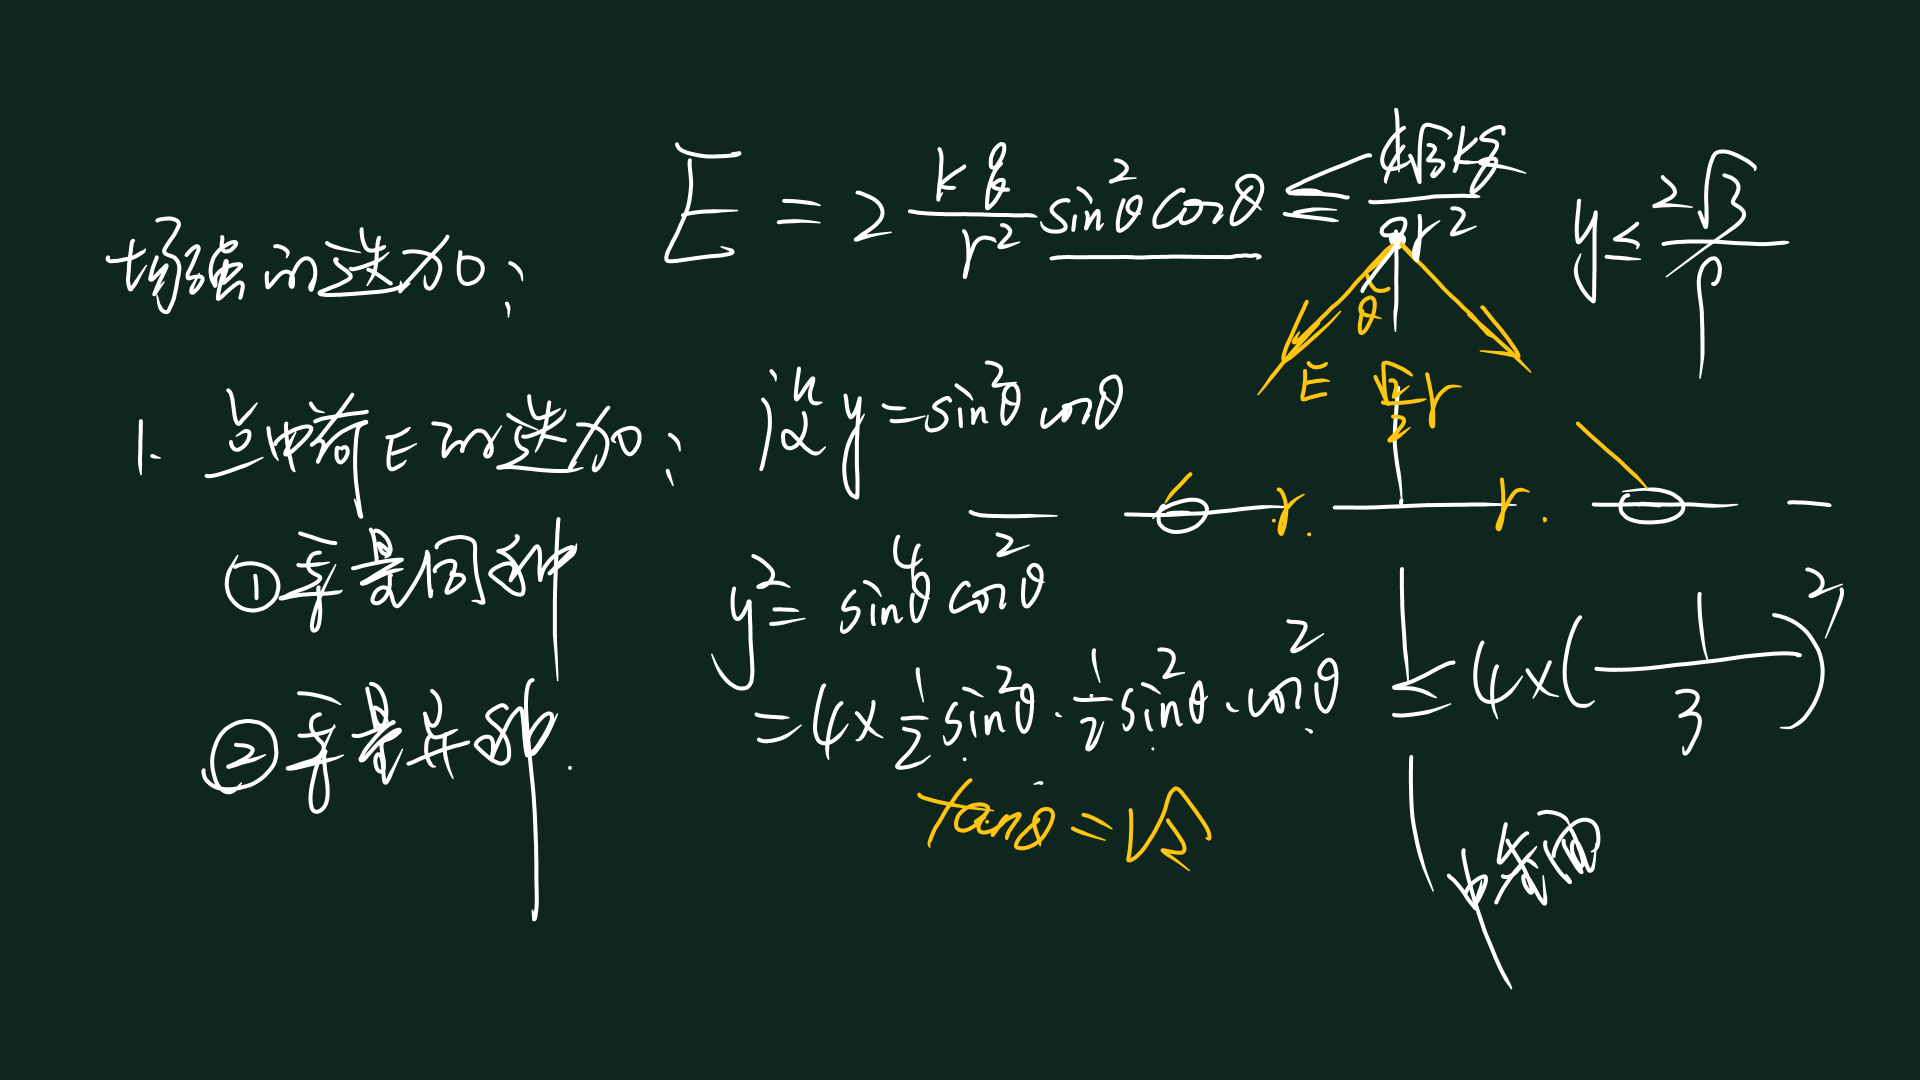 场强的迭加：
1. 点电荷E的迭加：
①等量同种
②等量异种.
E = 2 kq/r² sin²θ cosθ ≤ 4√3kq/9r²
y ≤ 2√3/9
θ
E
√2/2 r
r. r.
设 y = sin²θ cosθ
y² = sin⁴θ cos²θ
= 4 × 1/2 sin²θ · 1/2 sin²θ · cos²θ ≤ 4×(1/3)²
tanθ = √2
中垂面